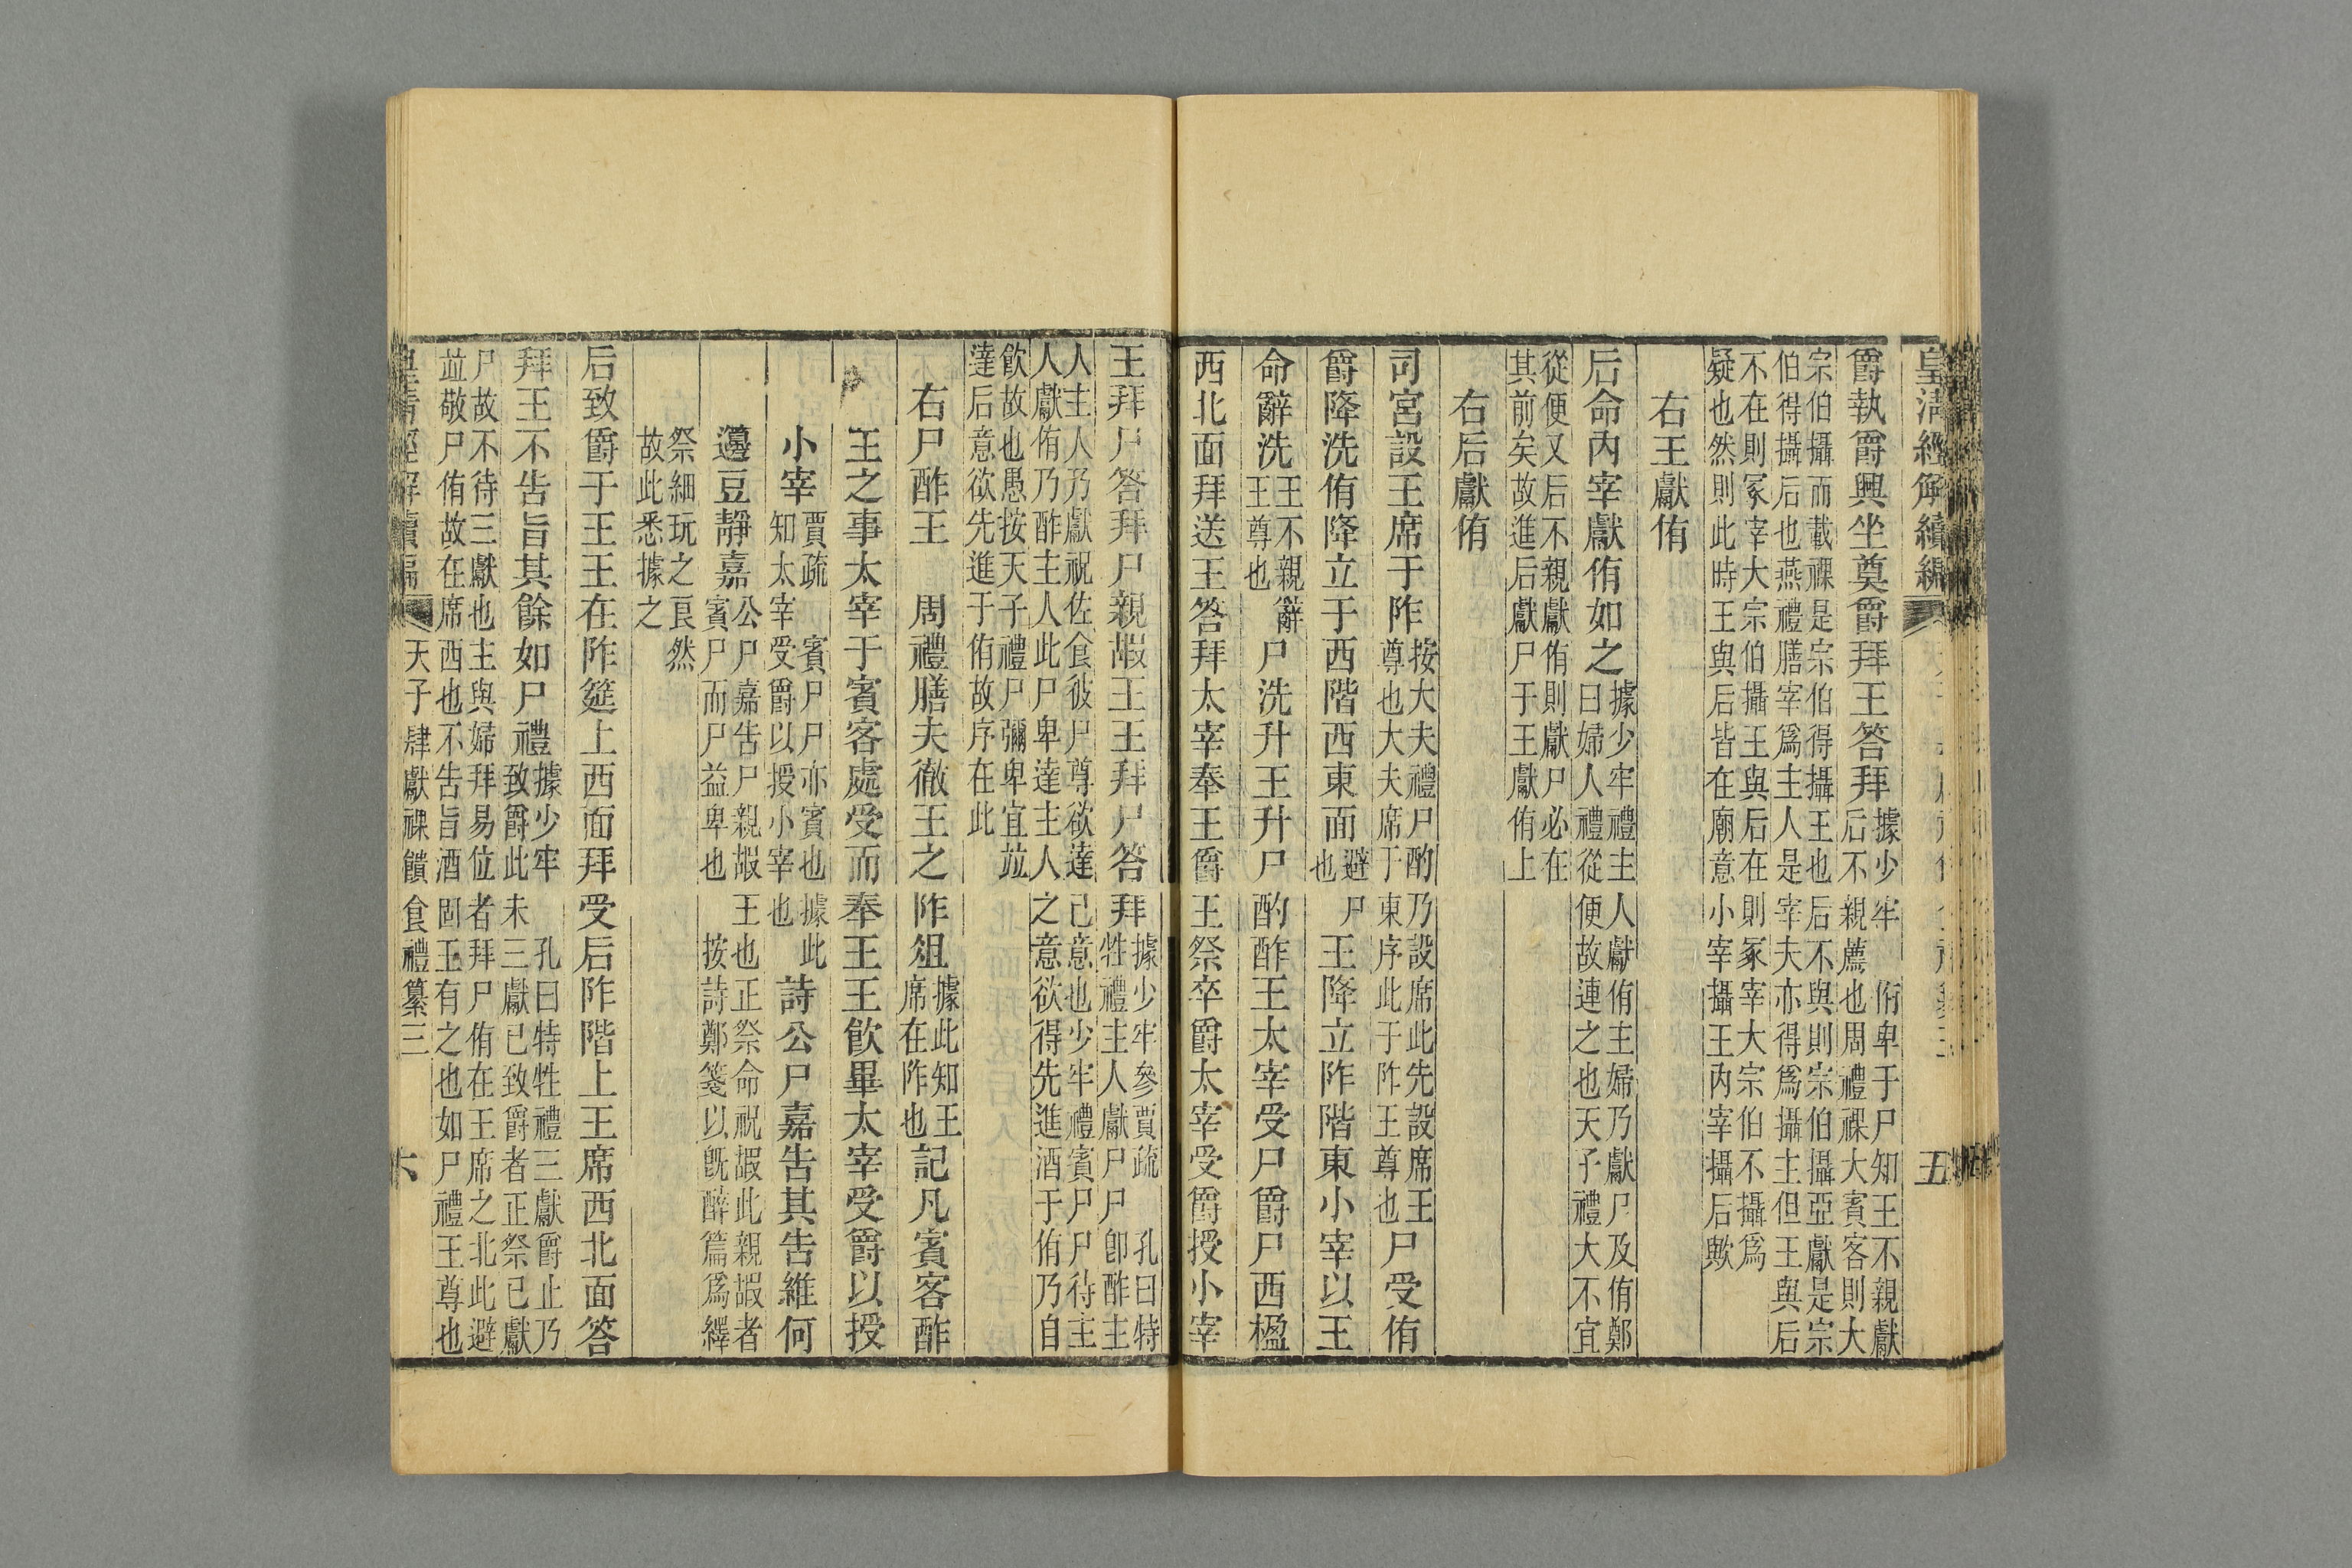 皇清經解續編 五
爵執爵興坐奠爵拜王答拜據少牢侑卑于尸知王不親獻后不親薦也周禮祼大賓客則大
宗伯攝而載祼是宗伯得攝王也后不與則宗伯攝亞獻是宗
伯得攝后也燕禮膳宰爲主人是宰夫亦得爲攝主但王與后
不在則冢宰大宗伯攝王與后在則冢宰大宗伯不攝爲
疑也然則此時王與后皆在廟意小宰攝王內宰攝后歟
右王獻侑
后命內宰獻侑如之據少牢禮主人獻侑主婦乃獻尸及侑鄭曰婦人禮從便故連之也天子禮大不宜
從便又后不親獻侑則獻尸必在
其前矣故進后獻尸于王獻侑上
右后獻侑
司宮設王席于阼按大夫禮尸酌乃設席此先設席王尊也大夫席于東序此于阼王尊也尸受侑
爵降洗侑降立于西階西東面避尸也王降立阼階東小宰以王
命辭洗王不親辭王尊也尸洗升王升尸酌酢王太宰受尸爵尸西楹
西北面拜送王答拜太宰奉王爵王祭卒爵太宰受爵授小宰
王拜尸答拜尸親嘏王王拜尸答拜據少牢參賈疏孔曰特牲禮主人獻尸尸卽酢主
人主人乃獻祝佐食彼尸尊欲達己意也少牢禮賓尸尸待主
人獻侑乃酢主人此尸卑達主人之意欲得先進酒于侑乃自
飮故也愚按天子禮尸彌卑宜並
達后意欲先進于侑故序在此
右尸酢王 周禮膳夫徹王之阼俎據此知王席在阼也記凡賓客酢
王之事太宰于賓客處受而奉王王飮畢太宰受爵以授
小宰賈疏賓尸尸亦賓也據此知太宰受爵以授小宰也詩公尸嘉告其告維何
籩豆靜嘉公尸嘉告尸親嘏王也正祭命祝嘏此親嘏者賓尸而尸益卑也按詩鄭箋以旣醉篇爲繹
祭細玩之良然
故此悉據之
后致爵于王王在阼筵上西面拜受后阼階上王席西北面答
拜王不告旨其餘如尸禮據少牢孔曰特牲禮三獻爵止乃致爵此未三獻已致爵者正祭已獻
尸故不待三獻也主與婦拜易位者拜尸侑在王席之北此避
並敬尸侑故在席西也不告旨酒固王有之也如尸禮王尊也
皇清經解續編 天子肆獻祼饋食禮纂三 六